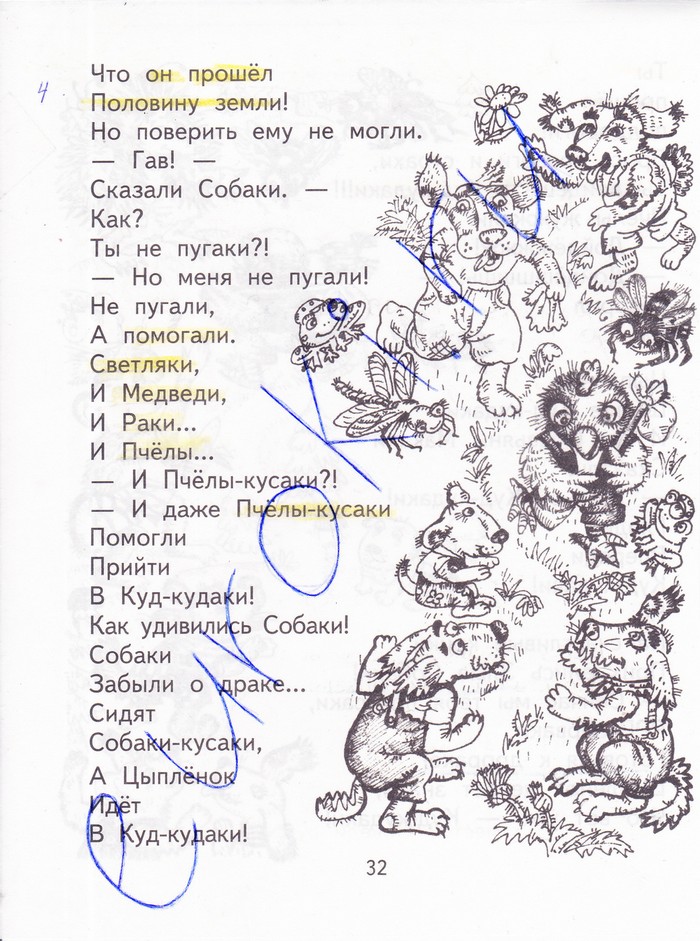 4
Что он прошёл
Половину земли!
Но поверить ему не могли.
— Гав! —
Сказали Собаки. —
Как?
Ты не пугаки?!
— Но меня не пугали!
Не пугали,
А помогали.
Светляки,
И Медведи,
И Раки...
И Пчёлы...
— И Пчёлы-кусаки?!
— И даже Пчёлы-кусаки
Помогли
Прийти
В Куд-кудаки!
Как удивились Собаки!
Собаки
Забыли о драке...
Сидят
Собаки-кусаки,
А Цыплёнок
Идёт
В Куд-кудаки!
32